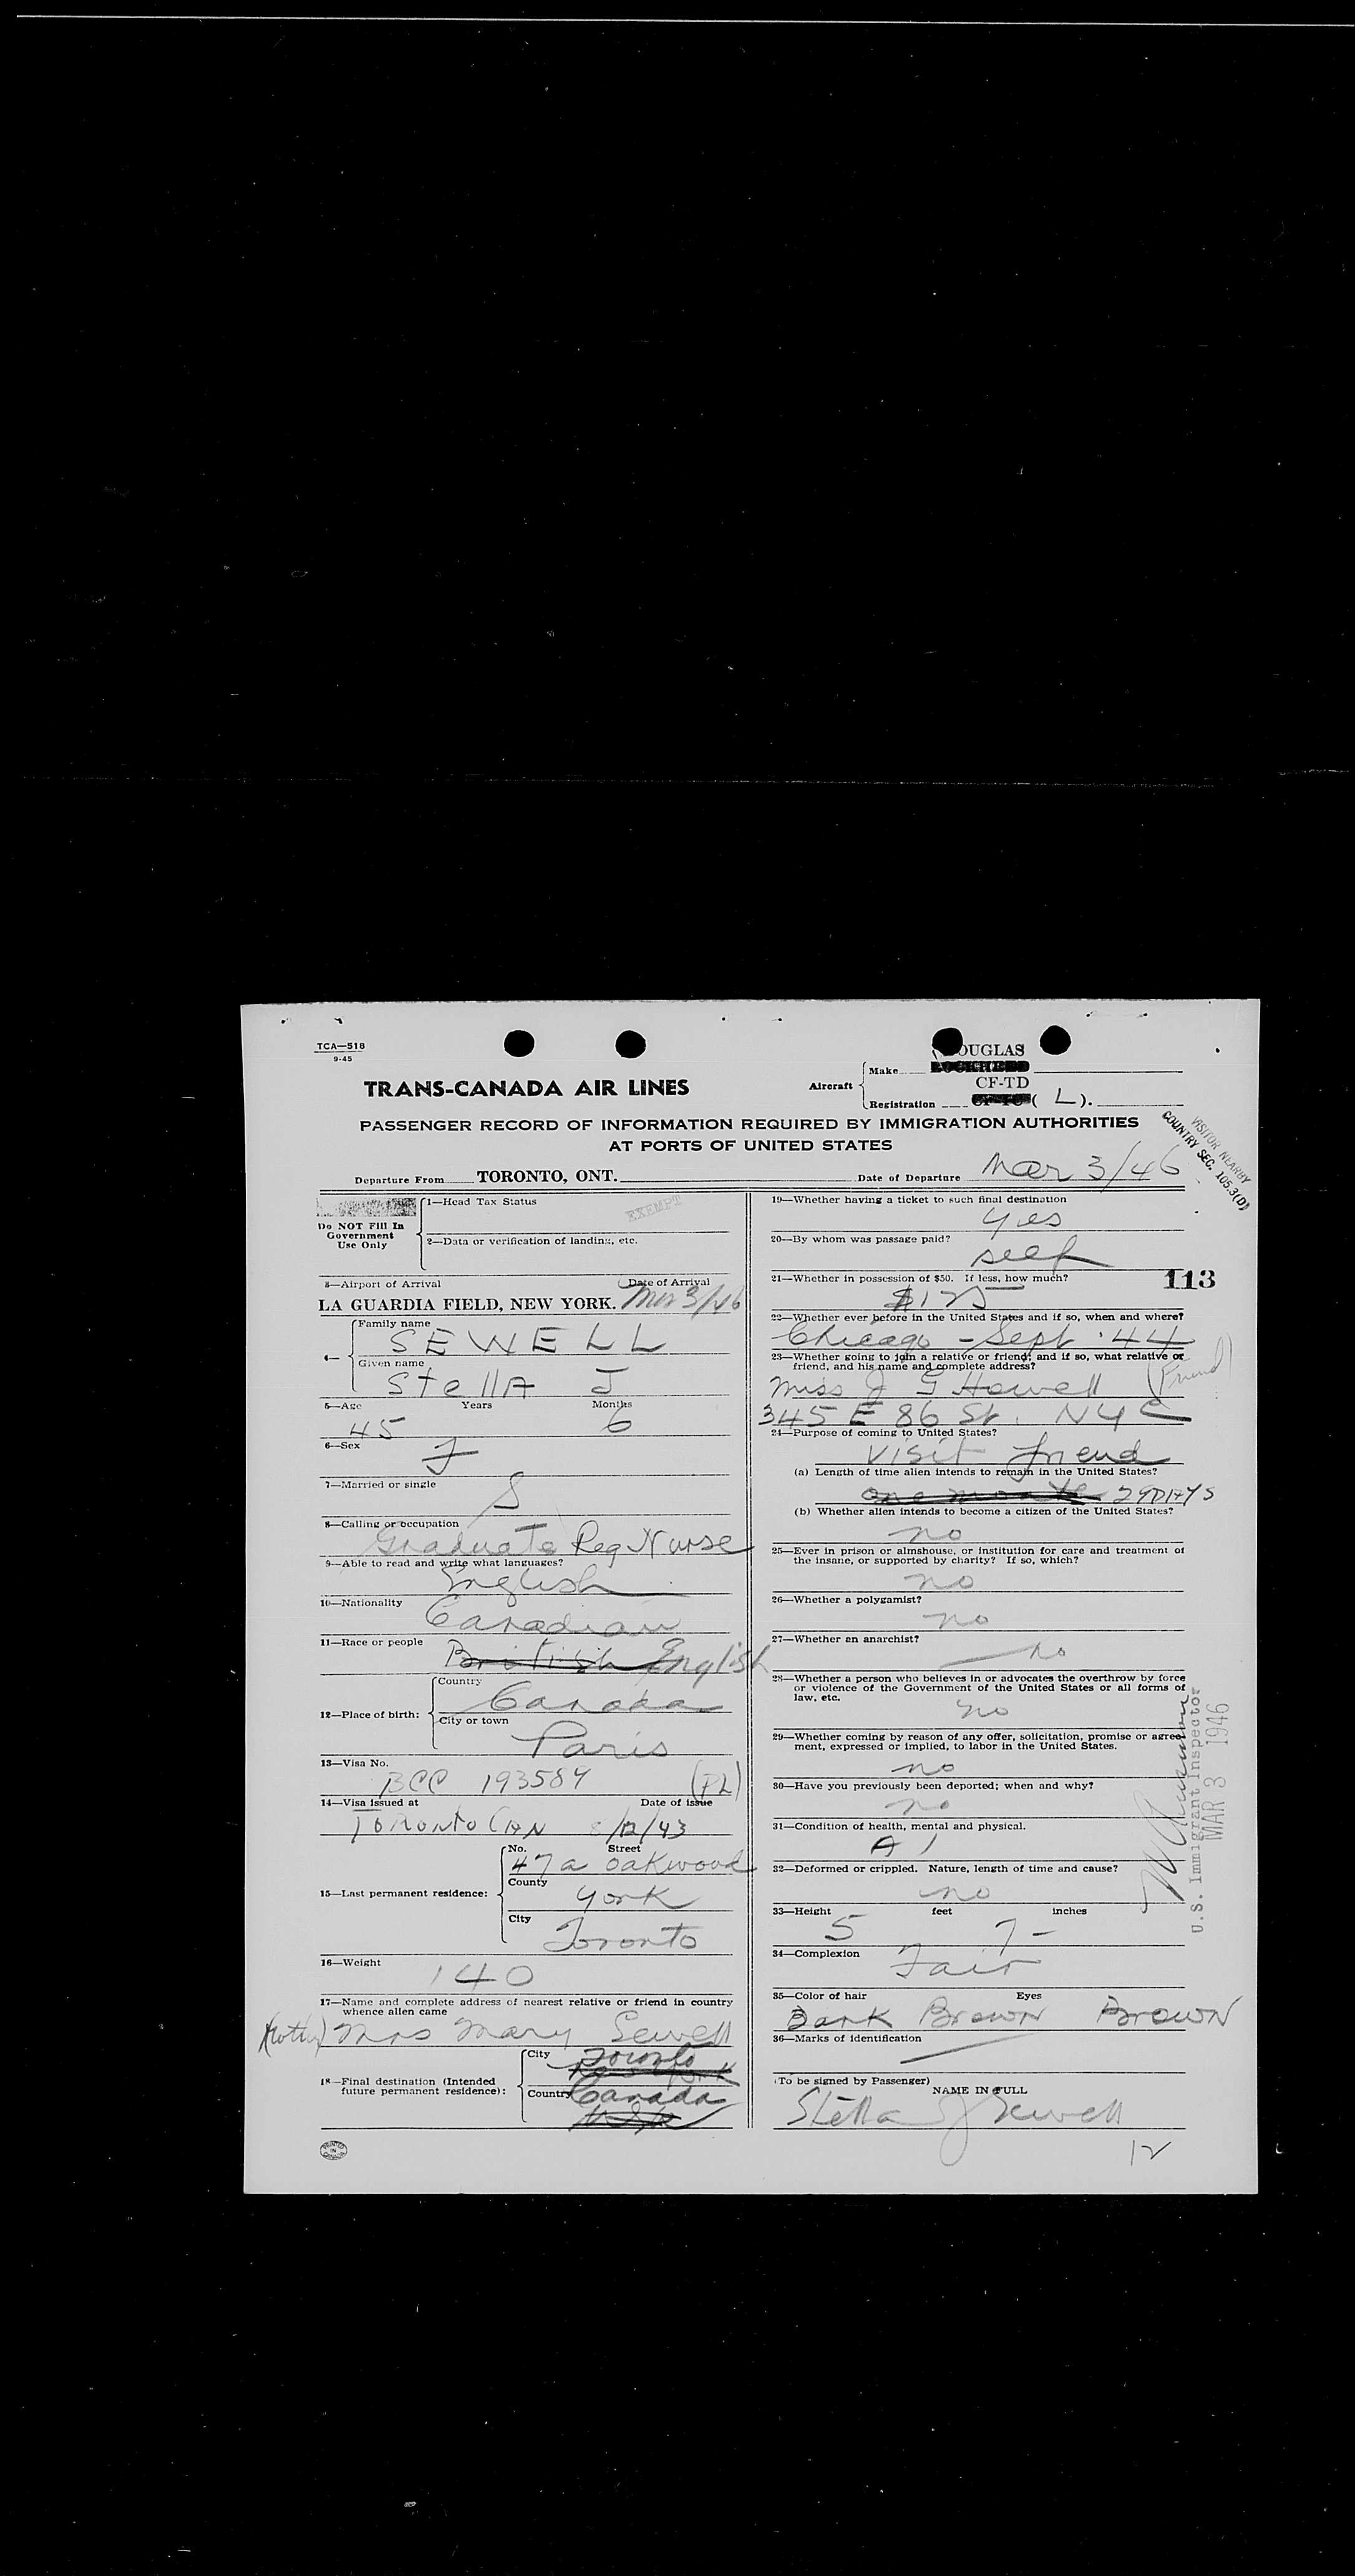 TCA—518
9-45
TRANS-CANADA AIR LINES
Aircraft
Make
DOUGLAS
LOCKHEED
Registration
CF-TD
CF-TC ( L ).
PASSENGER RECORD OF INFORMATION REQUIRED BY IMMIGRATION AUTHORITIES
AT PORTS OF UNITED STATES
VISITOR NEARBY
COUNTRY SEC. 105.3(D)
Departure From TORONTO, ONT. Date of Departure Mar 3/46
Do NOT Fill In
Government
Use Only
1—Head Tax Status
EXEMPT
2—Data or verification of landing, etc.
3—Airport of Arrival Date of Arrival
LA GUARDIA FIELD, NEW YORK. Mar 3/46
4—
Family name
SEWELL
Given name
Stella J
5—Age Years Months
45 6
6—Sex
F
7—Married or single
S
8—Calling or occupation
Graduate Reg Nurse
9—Able to read and write what languages?
English
10—Nationality
Canadian
11—Race or people
British English
12—Place of birth:
Country
Canada
City or town
Paris
13—Visa No.
BCC 193584 (PL)
14—Visa issued at Date of issue
TORONTO CAN 8/12/43
15—Last permanent residence:
No. Street
47a Oakwood
County
York
City
Toronto
16—Weight
140
17—Name and complete address of nearest relative or friend in country
whence alien came
(Mother) Mrs Mary Sewell
18—Final destination (Intended
future permanent residence):
City
Toronto
New York
Country
Canada
USA
PRINTED
IN
CANADA
19—Whether having a ticket to such final destination
Yes
20—By whom was passage paid?
self
21—Whether in possession of $50. If less, how much?
113
$125
22—Whether ever before in the United States and if so, when and where?
Chicago - Sept. '44
23—Whether going to join a relative or friend; and if so, what relative or
friend, and his name and complete address?
Miss J G Howell (Friend)
345 E 86 St. NYC
24—Purpose of coming to United States?
Visit friend
(a) Length of time alien intends to remain in the United States?
one month 29 DAYS
(b) Whether alien intends to become a citizen of the United States?
no
25—Ever in prison or almshouse, or institution for care and treatment of
the insane, or supported by charity? If so, which?
no
26—Whether a polygamist?
no
27—Whether an anarchist?
no
28—Whether a person who believes in or advocates the overthrow by force
or violence of the Government of the United States or all forms of
law, etc.
no
29—Whether coming by reason of any offer, solicitation, promise or agree-
ment, expressed or implied, to labor in the United States.
no
30—Have you previously been deported; when and why?
no
31—Condition of health, mental and physical.
A 1
32—Deformed or crippled. Nature, length of time and cause?
no
33—Height feet inches
5 7 -
34—Complexion
Fair
35—Color of hair Eyes
Dark Brown Brown
36—Marks of identification
(To be signed by Passenger)
NAME IN FULL
Stella J Sewell
12
U.S. Immigrant Inspector
MAR 3 1946